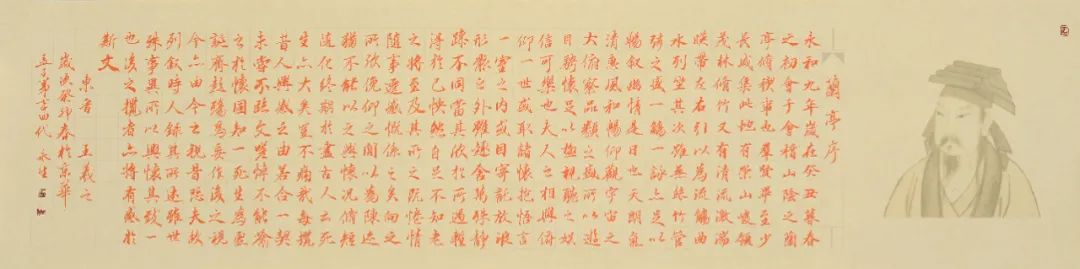 蘭亭序
永和九年歲在癸丑暮春
之初會于會稽山陰之蘭
亭脩禊事也羣賢畢至少
長咸集此地有崇山峻領
茂林脩竹又有清流激湍
暎帶左右引以為流觴曲
水列坐其次雖無絲竹管
弦之盛一觴一詠亦足以
暢叙幽情是日也天朗氣
清惠風和暢仰觀宇宙之
大俯察品類之盛所以遊
目騁懷足以極視聽之娛
信可樂也夫人之相與俯
仰一世或取諸懷抱悟言
一室之内或因寄託放浪
形骸之外雖趣舍萬殊靜
躁不同當其欣於所遇暫
得於己快然自足不知老
之將至及其所之既惓情
隨事遷感慨係之矣向之
所欣俛仰之間以為陳迹
猶不能以之興懷况脩短
隨化終期於盡古人云死
生亦大矣豈不痛哉每攬
昔人興感之由若合一契
未嘗不臨文嗟悼不能喻
之於懷固知一死生為虛
誕齊彭殤為妄作後之視
今亦由今之視昔悲夫故
列叙時人錄其所述雖世
殊事異所以興懷其致一
也後之攬者亦將有感於
斯文
東晋 王羲之
歲次癸卯春於京華
永生